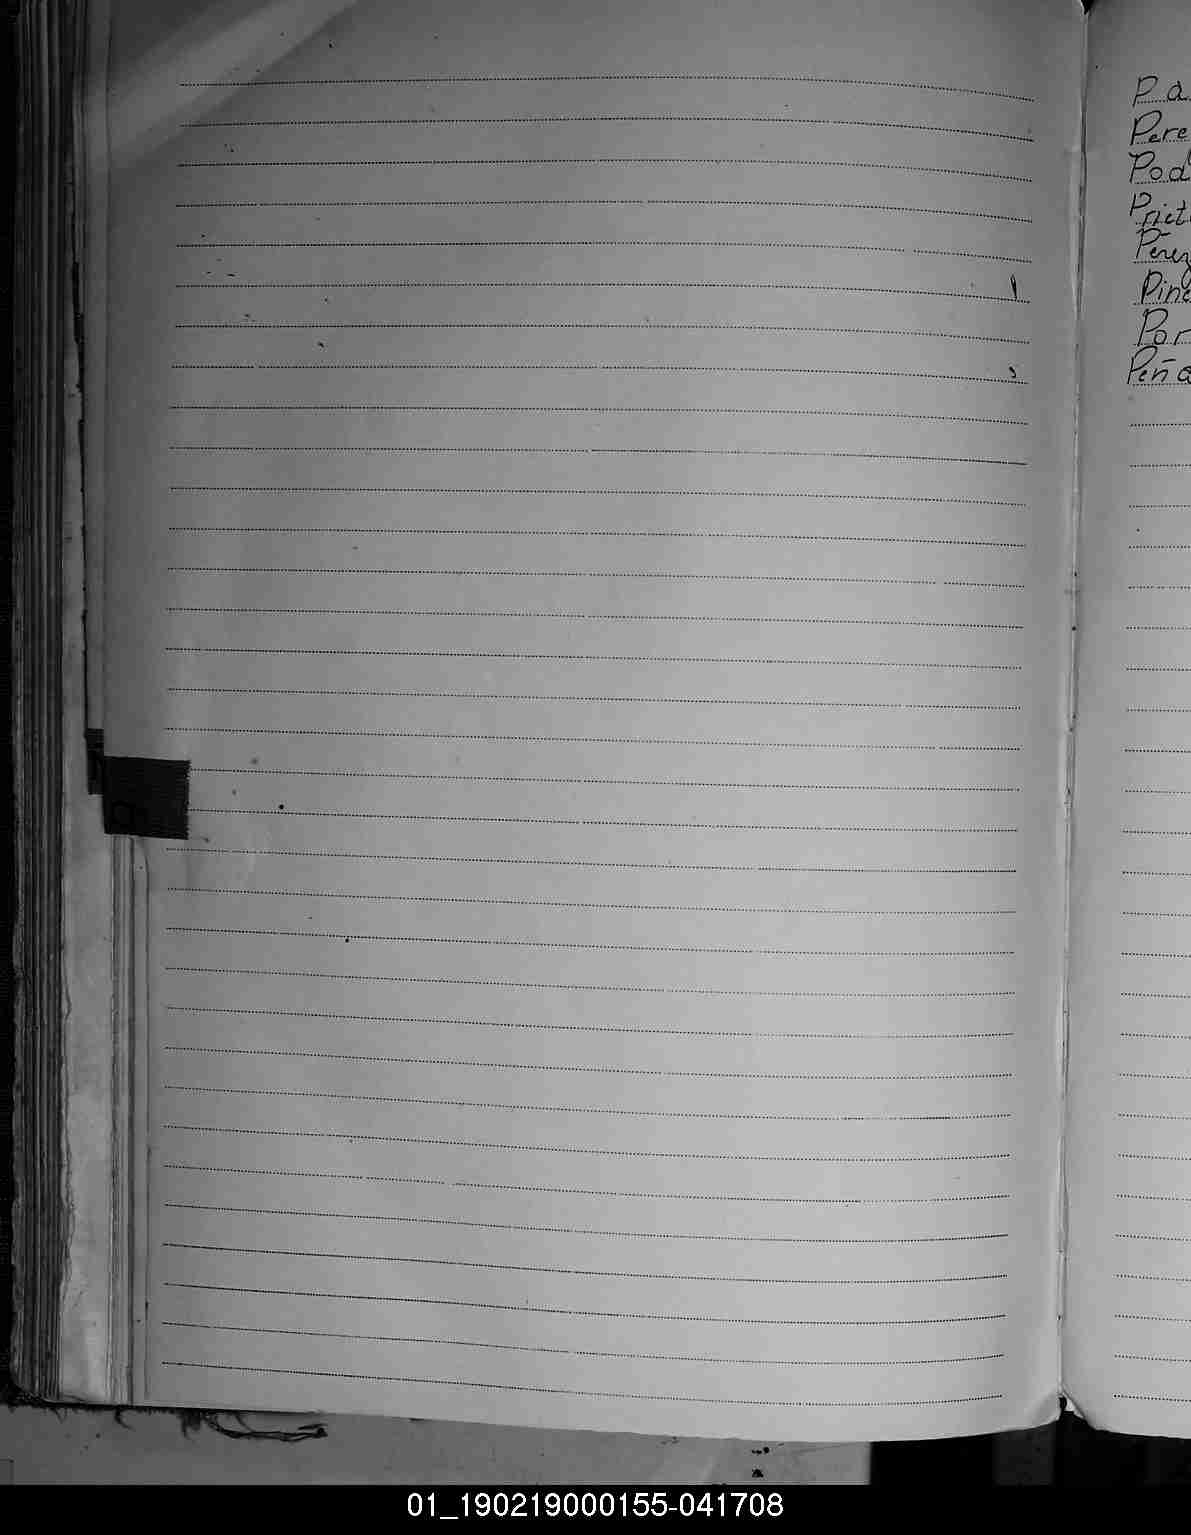 Pa
Pere
Pod
Priet
Pérez
Pine
Por
Peña
01_190219000155-041708